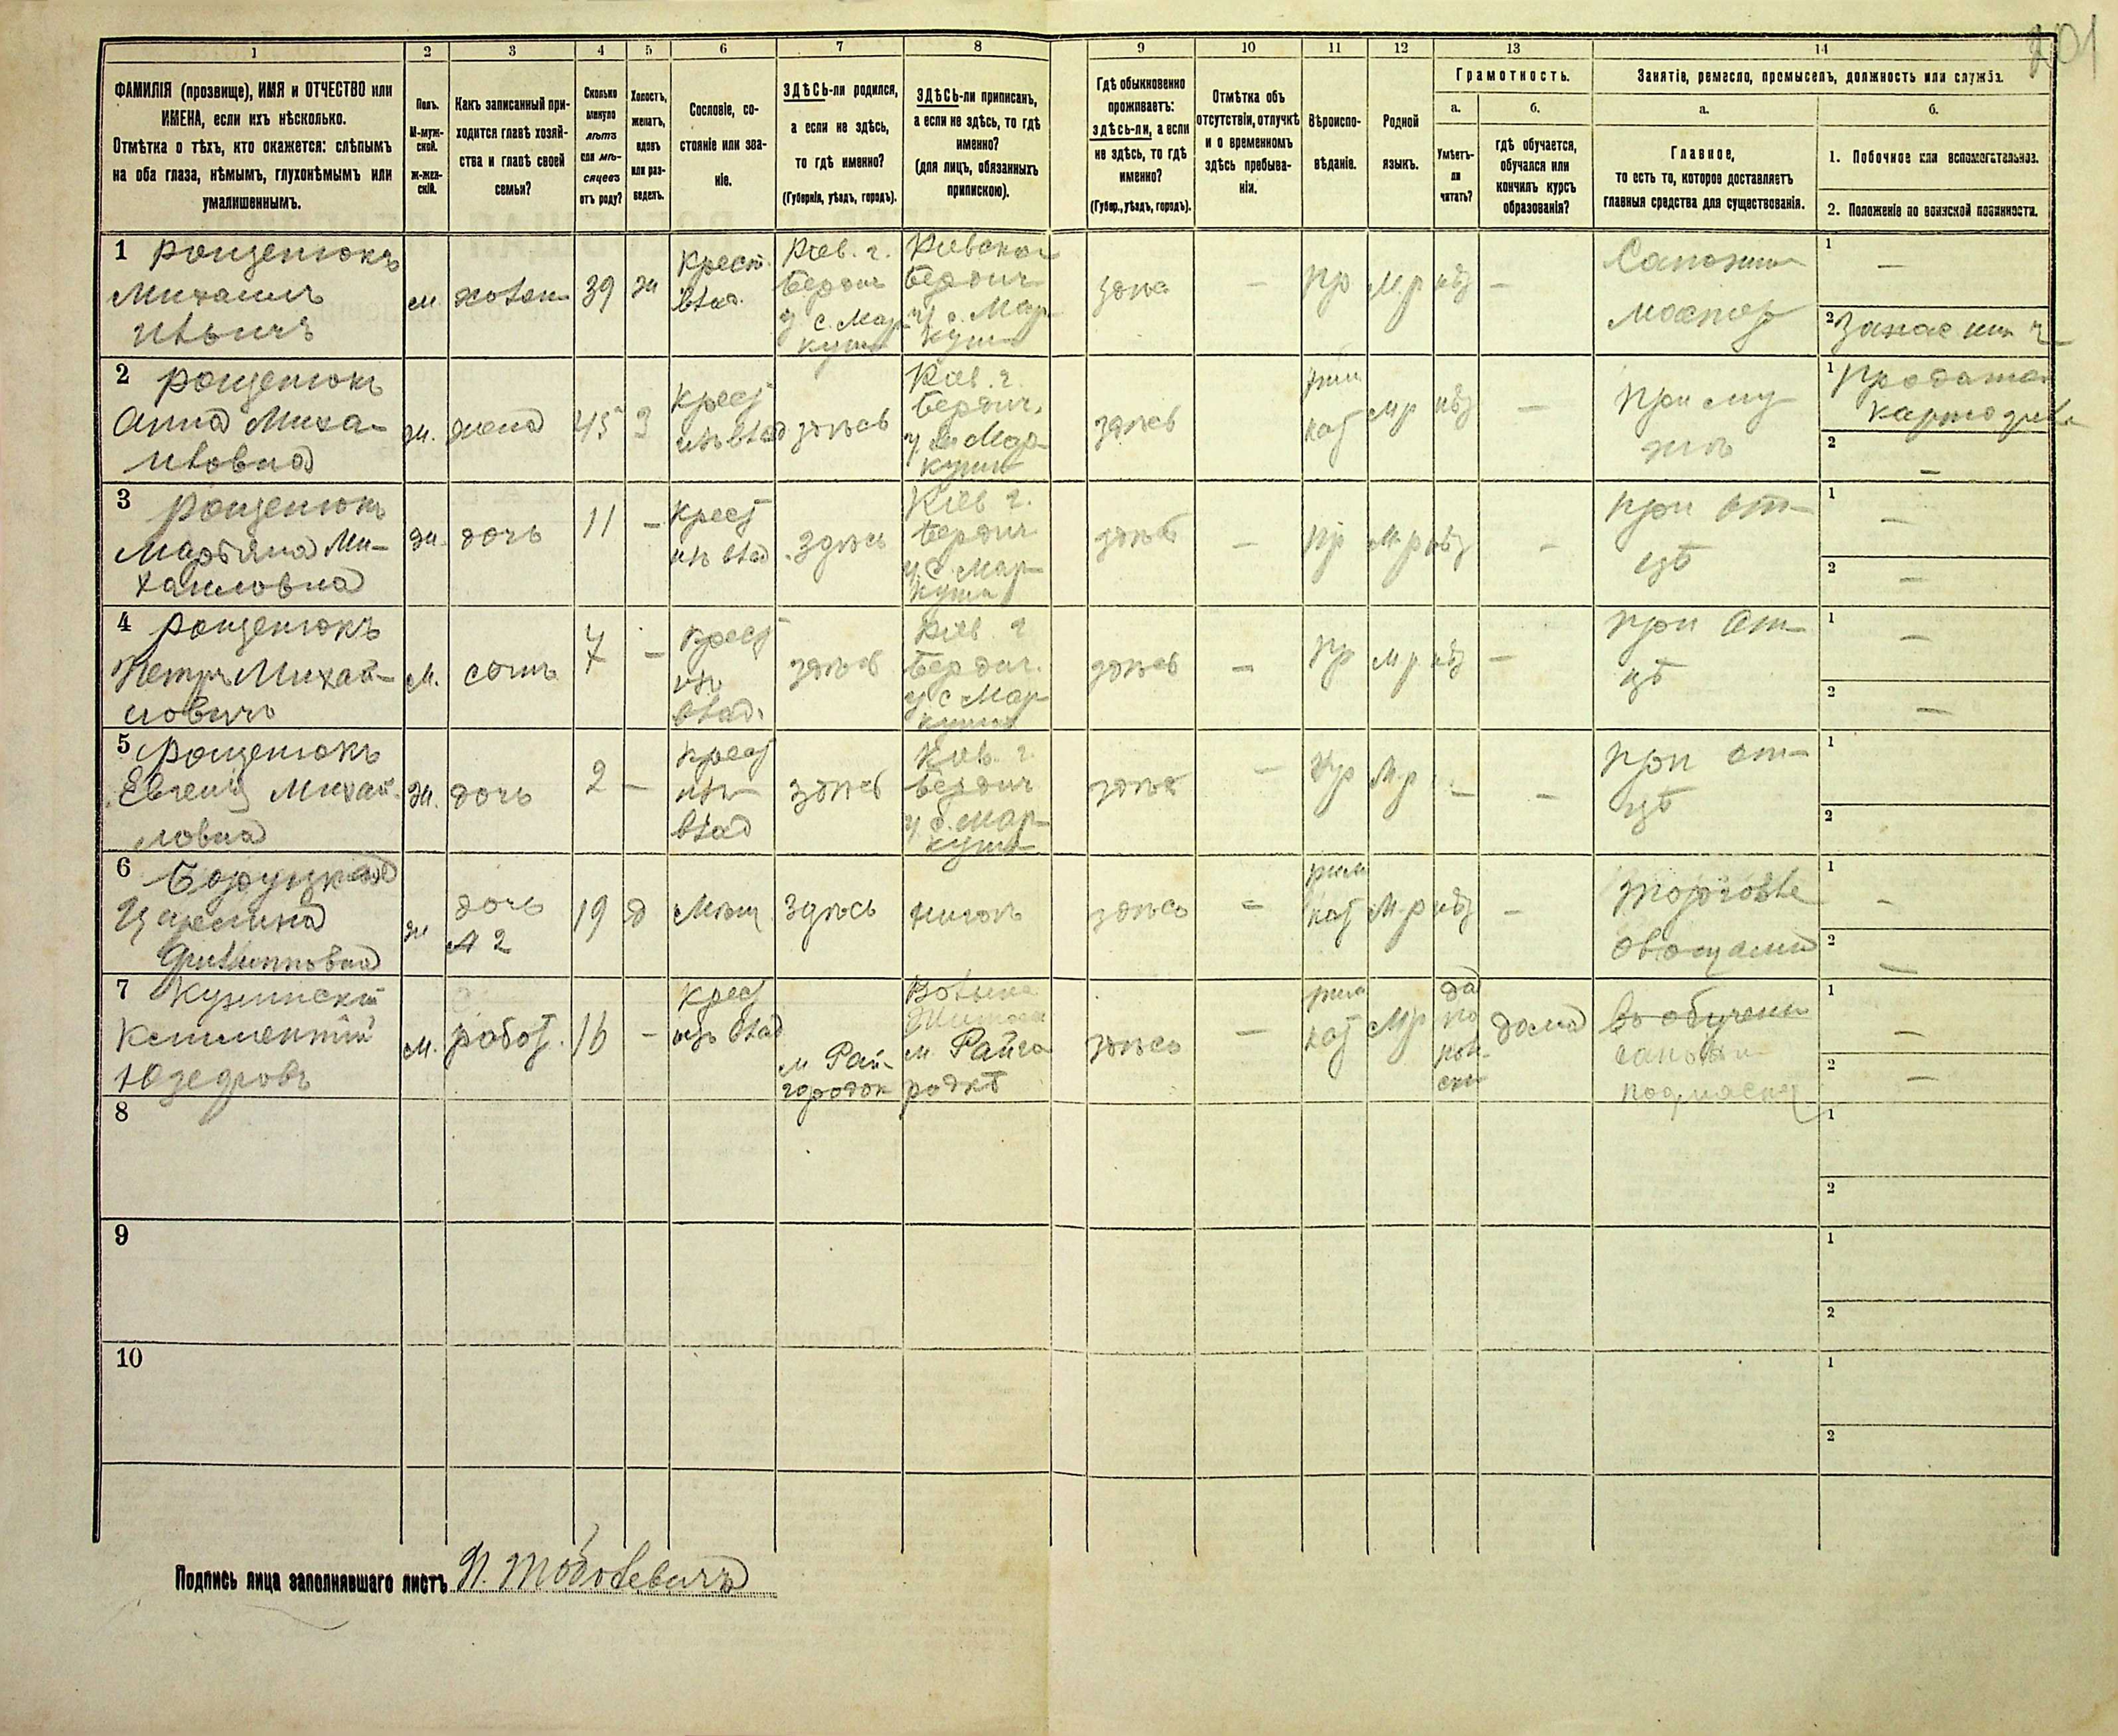 201
1 2 3 4 5 6 7 8 9 10 11 12 13 14
ФАМИЛІЯ (прозвище), ИМЯ и ОТЧЕСТВО или
ИМЕНА, если ихъ нѣсколько.
Отмѣтка о тѣхъ, кто окажется: слѣпымъ
на оба глаза, нѣмымъ, глухонѣмымъ или
умалишеннымъ.
Полъ.
М-муж-
ской.
ж-жен-
скій.
Какъ записанный при-
ходится главѣ хозяй-
ства и главѣ своей
семьи?
Сколько
минуло
лѣтъ
или мѣ-
сяцевъ
отъ роду?
Холостъ,
женатъ,
вдовъ
или раз-
веденъ.
Сословіе, со-
стояніе или зва-
ніе.
ЗДѢСЬ-ли родился,
а если не здѣсь,
то гдѣ именно?
(Губернія, уѣздъ, городъ).
ЗДѢСЬ-ли приписанъ,
а если не здѣсь, то гдѣ
именно?
(для лицъ, обязанныхъ
припискою).
Гдѣ обыкновенно
проживаетъ:
здѣсь-ли, а если
не здѣсь, то гдѣ
именно?
(Губер., уѣздъ, городъ).
Отмѣтка объ
отсутствіи, отлучкѣ
и о временномъ
здѣсь пребыва-
ніи.
Вѣроиспо-
вѣданіе.
Родной
языкъ.
Грамотность.
а.
Умѣетъ-
ли
читать?
б.
гдѣ обучается,
обучался или
кончилъ курсъ
образованія?
Занятіе, ремесло, промыселъ, должность или служба.
а.
Главное,
то есть то, которое доставляетъ
главныя средства для существованія.
б.
1. Побочное или вспомогательное.
2. Положеніе по воинской повинности.
1 Рощенюкъ
Михаилъ
Ильичъ
м хозяин 39 ж
Крест.
влад.
Кіев. г.
Бердич
у с. Мар
куши
Кіевской
Бердич
у с. Мар
куши
здѣс
—
пр
М р
нѣт
—
Сапожни
мастер
1 —
2
2 Рощенюкъ
Анна Миха-
ловна
ж. жена 45 З
Крест
изъ влад
здѣсь
Кіев. г.
Бердич.
у с Мар-
куши
здѣсь
рим
кат
М р
нѣт
—
При му
жѣ
1 Продажа
картофеля
2 —
3 Рощенюкъ
Марьяна Ми-
хаиловна
ж. дочь 11 —
Крест
изъ влад
здѣсь
Кіев г.
Бердич
у с. Мар-
куши
здѣсь
—
пр
М р
нѣт
—
при от-
цѣ
1 —
2 —
4 Рощенюкъ
Петръ Михай-
ловичъ
м. сынъ 7 —
Крест
изъ
влад.
здѣсь
Кіев. г
Бердич.
у с Мар-
куши
здѣсь
—
Пр
М р
нѣт
—
при от-
цѣ
1 —
2 —
5 Рощенюкъ
Евгенія Михай-
ловна
ж. дочь 2 —
Крест
изъ
влад
здѣсь
Кіев. г.
Бердич
у с. Мар-
куши
здѣсь
—
Пр
М р
—
—
при от-
цѣ
1
2
6
Филипповна
ж
дочь
№ 2
19 д
Мѣщ.
здѣсь
здѣсь
—
рим
кат
М р
нѣт
—
торговля
овощами
1 —
2 —
7
Климентій
Юзефовъ
м. работ. 16 —
Крест
изъ влад
м Рай-
городок
Волынс
м Райго
родкѣ
здѣсь
—
рим
кат
М р
да
по
поль
ски
дома
въ обучени
сапожн
подмаск
1 —
2 —
8
1
2
9
1
2
10
1
2
Подпись лица заполнявшаго листъ